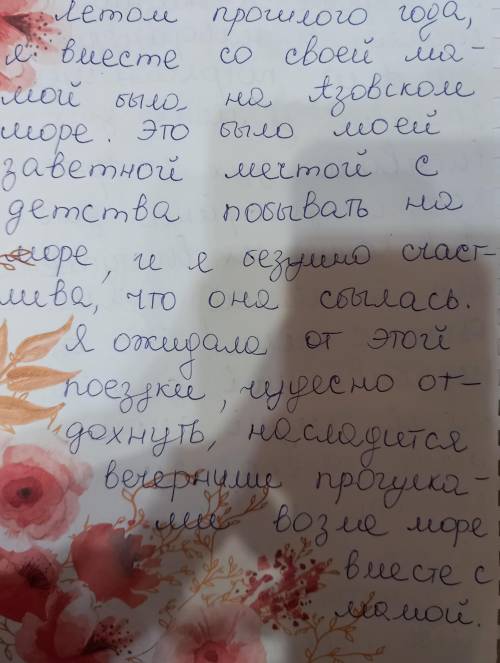 Летом прошлого года,
я вместе со своей ма-
мой была на Азовском
море. Это было моей
заветной мечтой с
детства побывать на
море, и я безумно счаст-
лива, что она сбылась.
Я ожидала от этой
поездки, чудесно от-
дохнуть, насладится
вечерними прогулка-
ми возле море
вместе с
мамой.